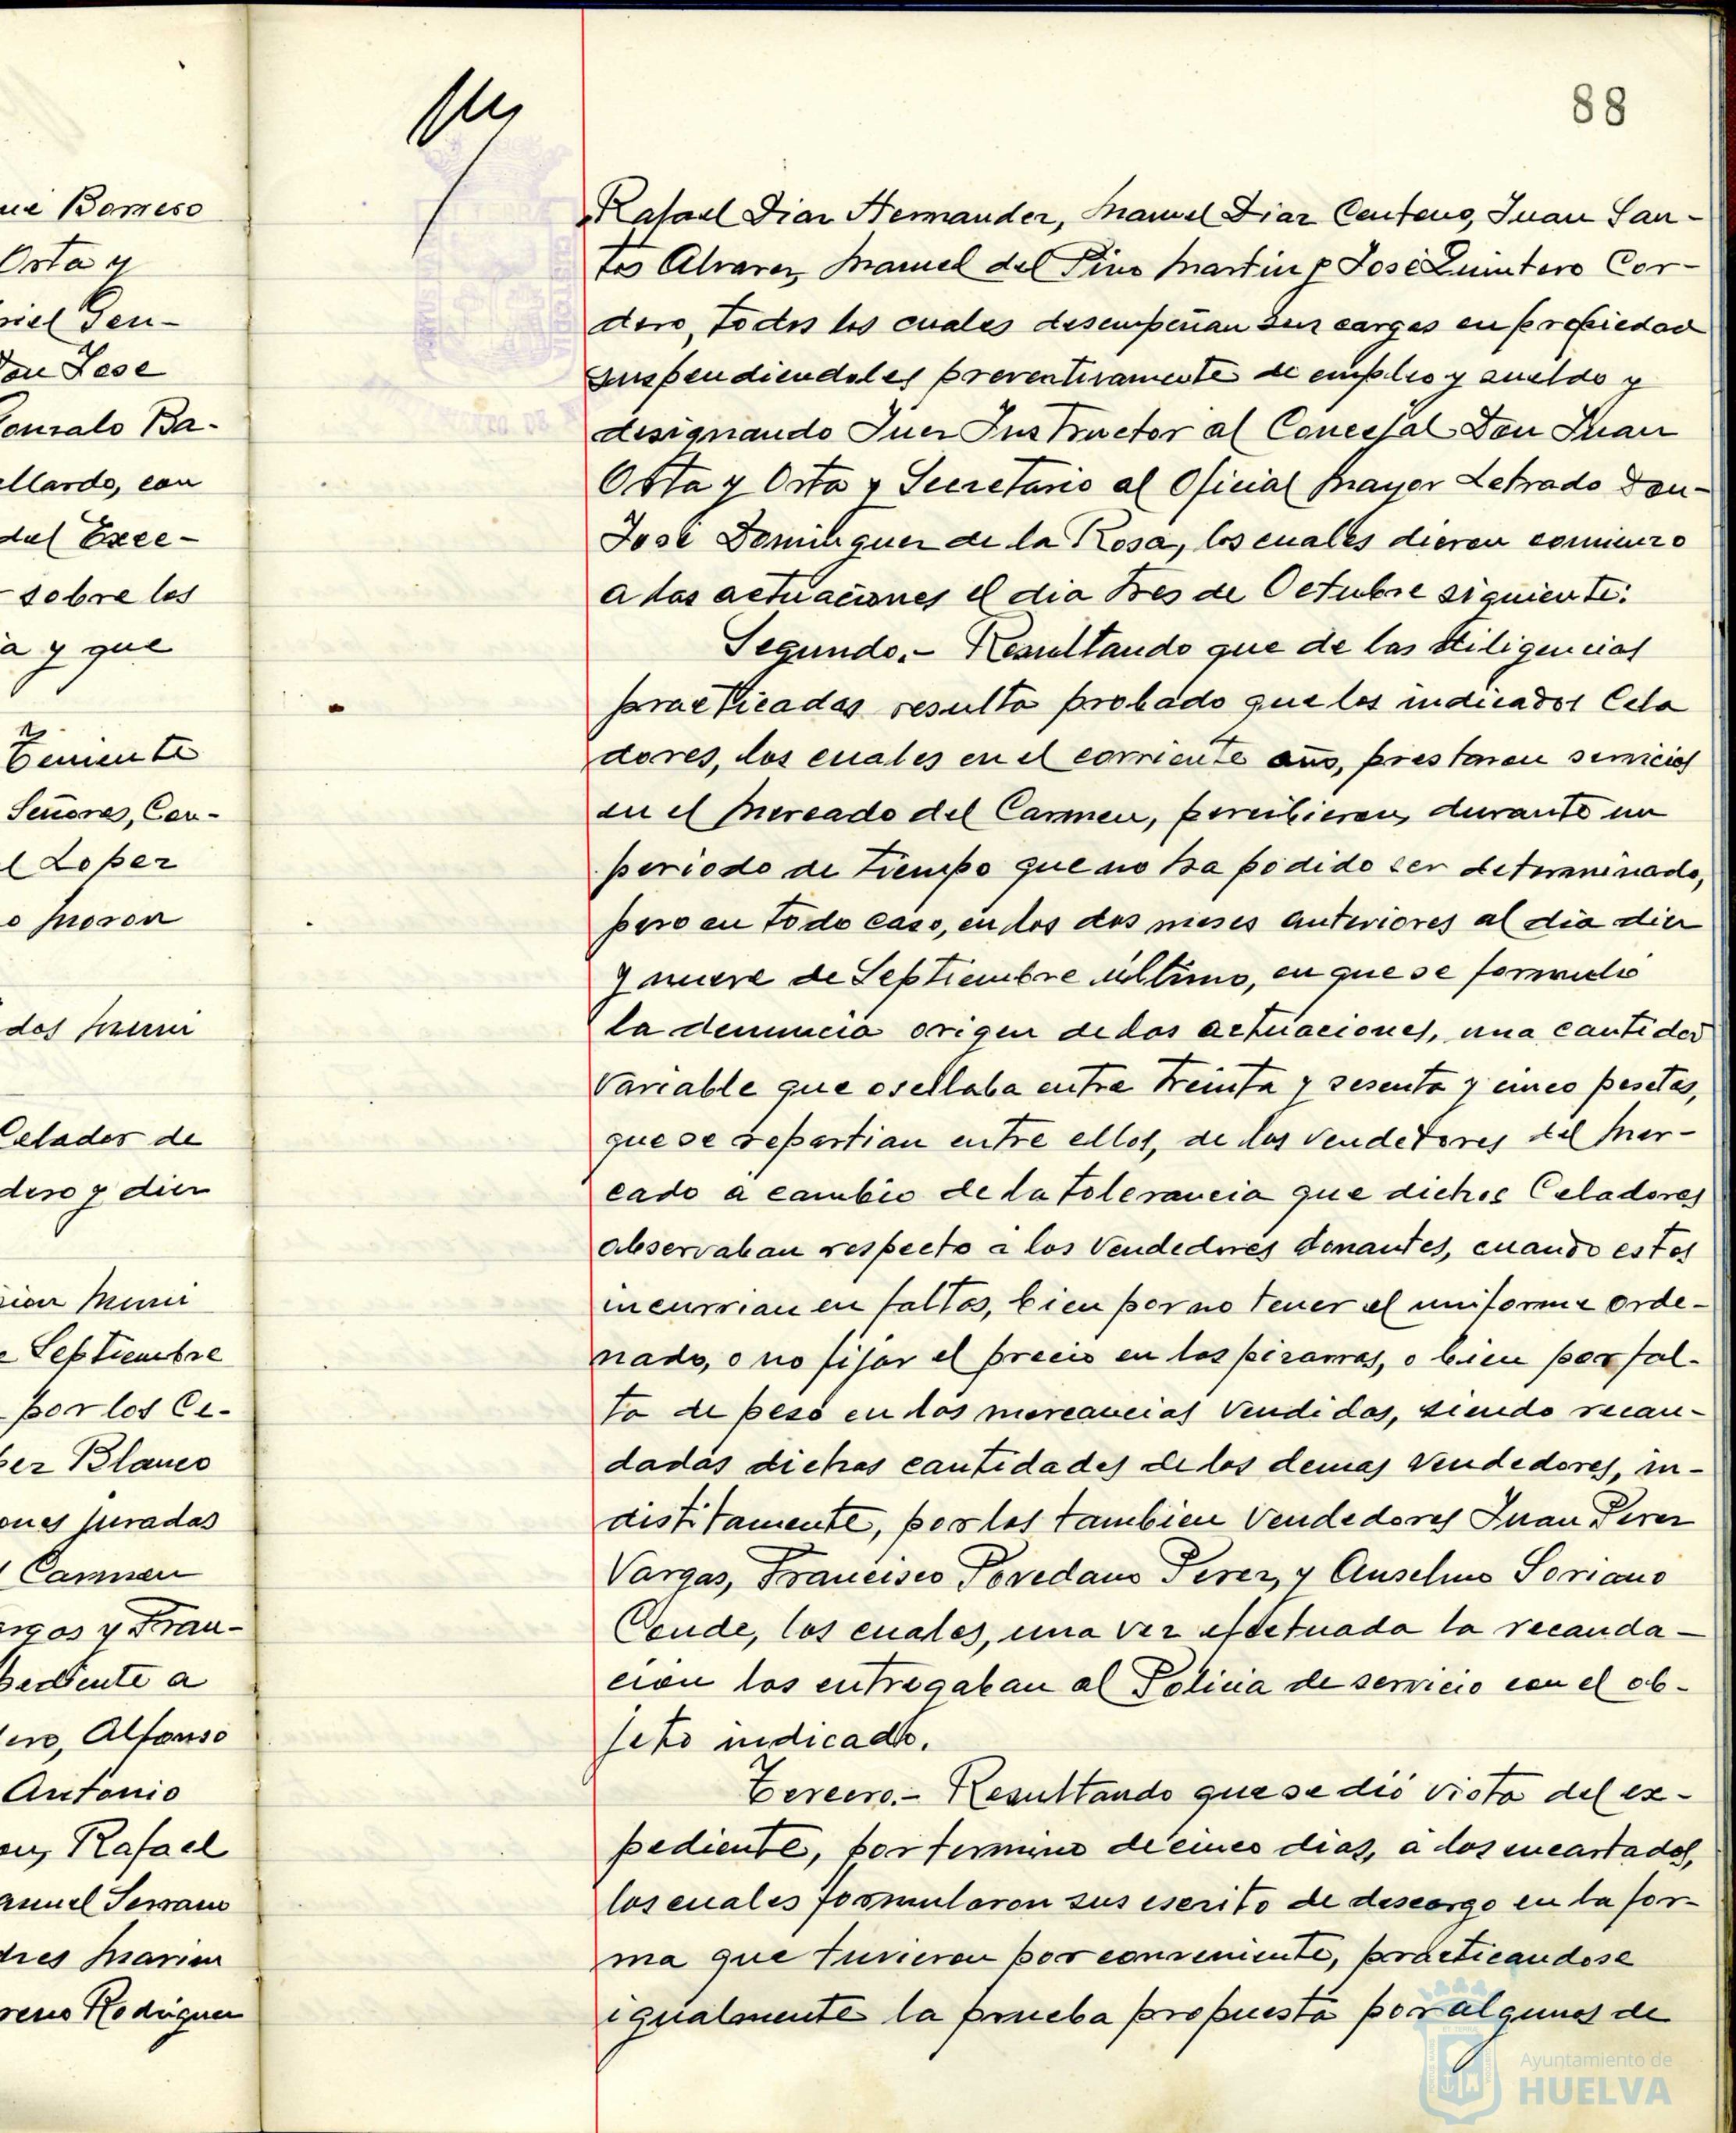 88
ue Borrero
Orta y
riel Gen-
Don Jose
Gonzalo Ba-
ellardo, con
del Exce-
sobre los
a y que
Teniente
Señores, Con-
l Lopez
o Moron
dos Muni
Celador de
dero y diez
sion Muni
e Septiembre
por los Ce-
pez Blanco
ones juradas
l Carmen
argas y Fran-
pediente a
ero, Alfonso
Antonio
on, Rafael
anuel Serrano
dres Marin
reno Rodriguez
Rafael Diaz Hernandez, Manuel Diaz Centeno, Juan San-
tos Alvarez, Manuel del Pino Martin y José Quintero Cor-
dero, todos los cuales desempeñan sus cargos en propiedad
suspendiendoles preventivamente de empleo y sueldo y
designando Juez Instructor al Concejal Don Juan
Orta y Orta y Secretario al Oficial Mayor Letrado Don-
José Dominguez de la Rosa, los cuales dieron comienzo
a las actuaciones el dia tres de Octubre siguiente:
Segundo.- Resultando que de las diligencias
practicadas resulta probado que los indicados Cela
dores, los cuales en el corriente año, prestaron servicios
en el Mercado del Carmen, percibieron, durante un
periodo de tiempo que no ha podido ser determinado,
pero en todo caso, en los dos meses anteriores al dia diez
y nueve de Septiembre último, en que se formuló
la denuncia origen de las actuaciones, una cantidad
variable que oscilaba entre treinta y sesenta y cinco pesetas,
que se repartian entre ellos, de los vendedores del Mer-
cado a cambio de la tolerancia que dichos Celadores
observaban respecto a los vendedores donantes, cuando estos
incurrian en faltas, bien por no tener el uniforme orde-
nado, o no fijar el precio en las pizarras, o bien por fal-
ta de peso en las mercancias vendidas, siendo recau-
dadas dichas cantidades de los demas vendedores, in-
distitamente, por los tambien vendedores Juan Perez
Vargas, Francisco Povedano Perez, y Anselmo Soriano
Conde, los cuales, una vez efectuada la recauda-
cion las entregaban al Policia de servicio con el ob-
jeto indicado.
Tercero.- Resultando que se dió vista del ex-
pediente, por termino de cinco dias, a los encartados,
los cuales formularon sus escrito de descargo en la for-
ma que tuvieron por conveniente, practicandose
igualmente la prueba propuesta por algunos de
Ayuntamiento de
HUELVA